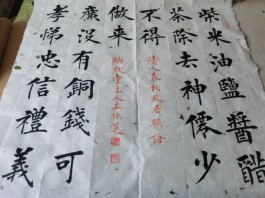 柴米油鹽醬醋
茶除去神僊少
不得
孝悌忠信禮義
廉沒有銅錢可
做來